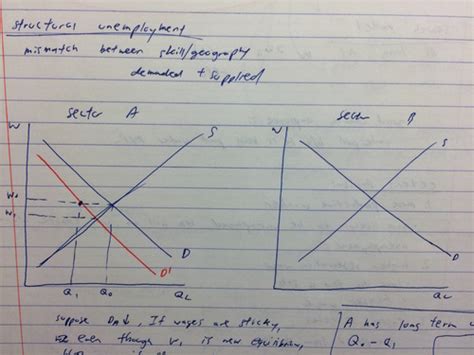 structural unemployment
mismatch between skill/geography
demanded + supplied
sector A
sector B
W
S
W
S
W₀
W₁
D
D'
D
Q₁
Q₀
QL
QL
suppose DA↓, If wages are sticky,
even though W₁ is new equilibrium,
A has long term
Q₀ - Q₁